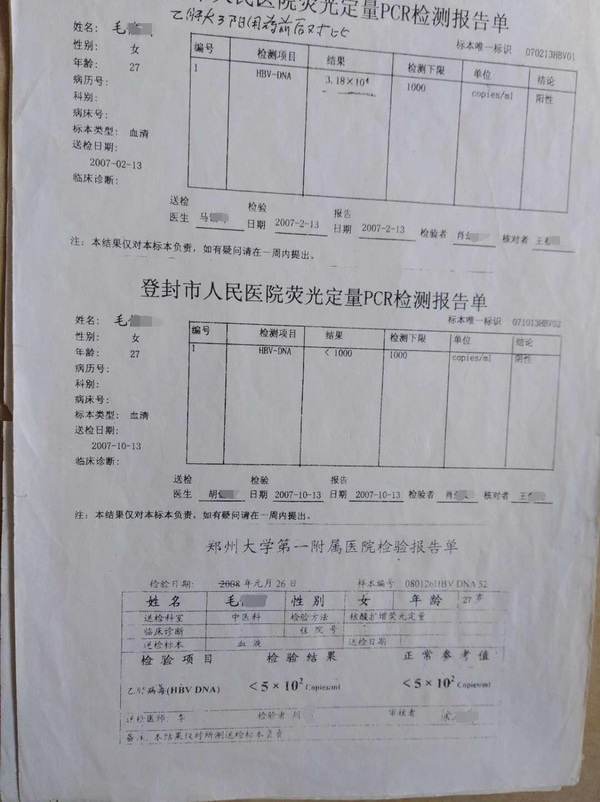 人民医院荧光定量PCR检测报告单
用药前后对比
姓名: 毛
标本唯一标识 070213HBV01
性别: 女
年龄: 27
病历号:
科别:
病床号:
标本类型: 血清
送检日期:
2007-02-13
临床诊断:
编号 检测项目 结果 检测下限 单位 结论
1 HBV-DNA 3.18×10⁴ 1000 copies/ml 阳性
送检 检验 报告
医生 马 日期 2007-2-13 日期 2007-2-13 检验者 肖 核对者 王
注: 本结果仅对本标本负责, 如有疑问请在一周内提出。
登封市人民医院荧光定量PCR检测报告单
姓名: 毛
标本唯一标识 071013HBV02
性别: 女
年龄: 27
病历号:
科别:
病床号:
标本类型: 血清
送检日期:
2007-10-13
临床诊断:
编号 检测项目 结果 检测下限 单位 结论
1 HBV-DNA < 1000 1000 copies/ml 阴性
送检 检验 报告
医生 胡 日期 2007-10-13 日期 2007-10-13 检验者 肖 核对者 王
注: 本结果仅对本标本负责, 如有疑问请在一周内提出。
郑州大学第一附属医院检验报告单
检验日期: 2008 年元月 26 日 样本编号 080126HBV DNA 52
姓名 毛 性别 女 年龄 27岁
送检科室 中医科 检验方法 核酸扩增荧光定量
临床诊断 住院号
送检标本 血液 送检日期
检验项目 检验结果 正常参考值
乙肝病毒(HBV DNA) <5×10² Copies/ml <5×10² Copies/ml
送检医师: 李 检验者 审核者
备注: 本结果仅对所测送检标本负责